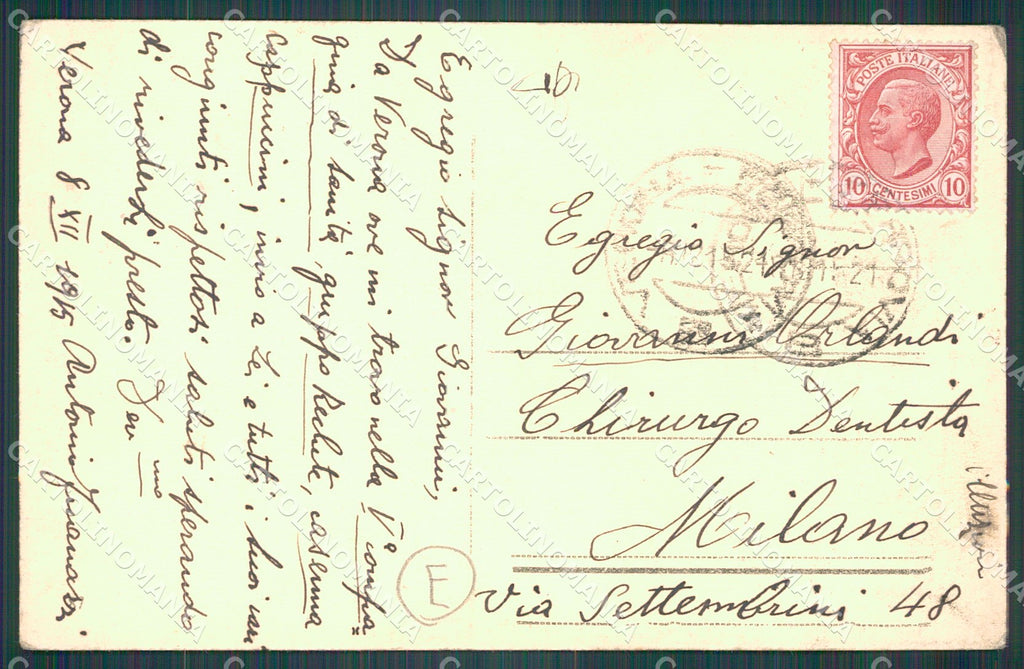 Egregio signor Giovanni,
Da Verona ove mi trovo nella Vª Compa=
gnia di sanità, gruppo Reclute, caserma
Cappuccini, invio a Lei e tutti i suoi cari
congiunti rispettosi saluti sperando
di rivederLi presto.
Dev mo
Verona 8 XII 1915 Antonio
POSTE ITALIANE
10 CENTESIMI 10
Egregio Signor
Giovanni Orlandi
Chirurgo Dentista
Milano
Via Settembrini 48
E
CARTOLINOMANIA